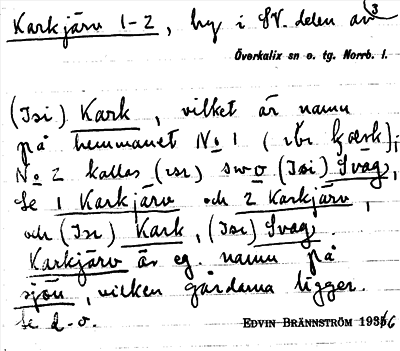 Karkjärv 1-2, by i SV. delen av 3
Överkalix sn o. tg. Norrb. l.
(Isi) Kark, vilket är namn
på hemmanet No 1 (
No 2 kallas (isi) (Isi) Svag,
Se 1 Karkjärv och 2 Karkjärv,
och (Isi) Kark, (Isi) Svag.
Karkjärv är eg. namn på
sjön, vilken gårdarna ligger.
Se d. o.
EDVIN BRÄNNSTRÖM 1936